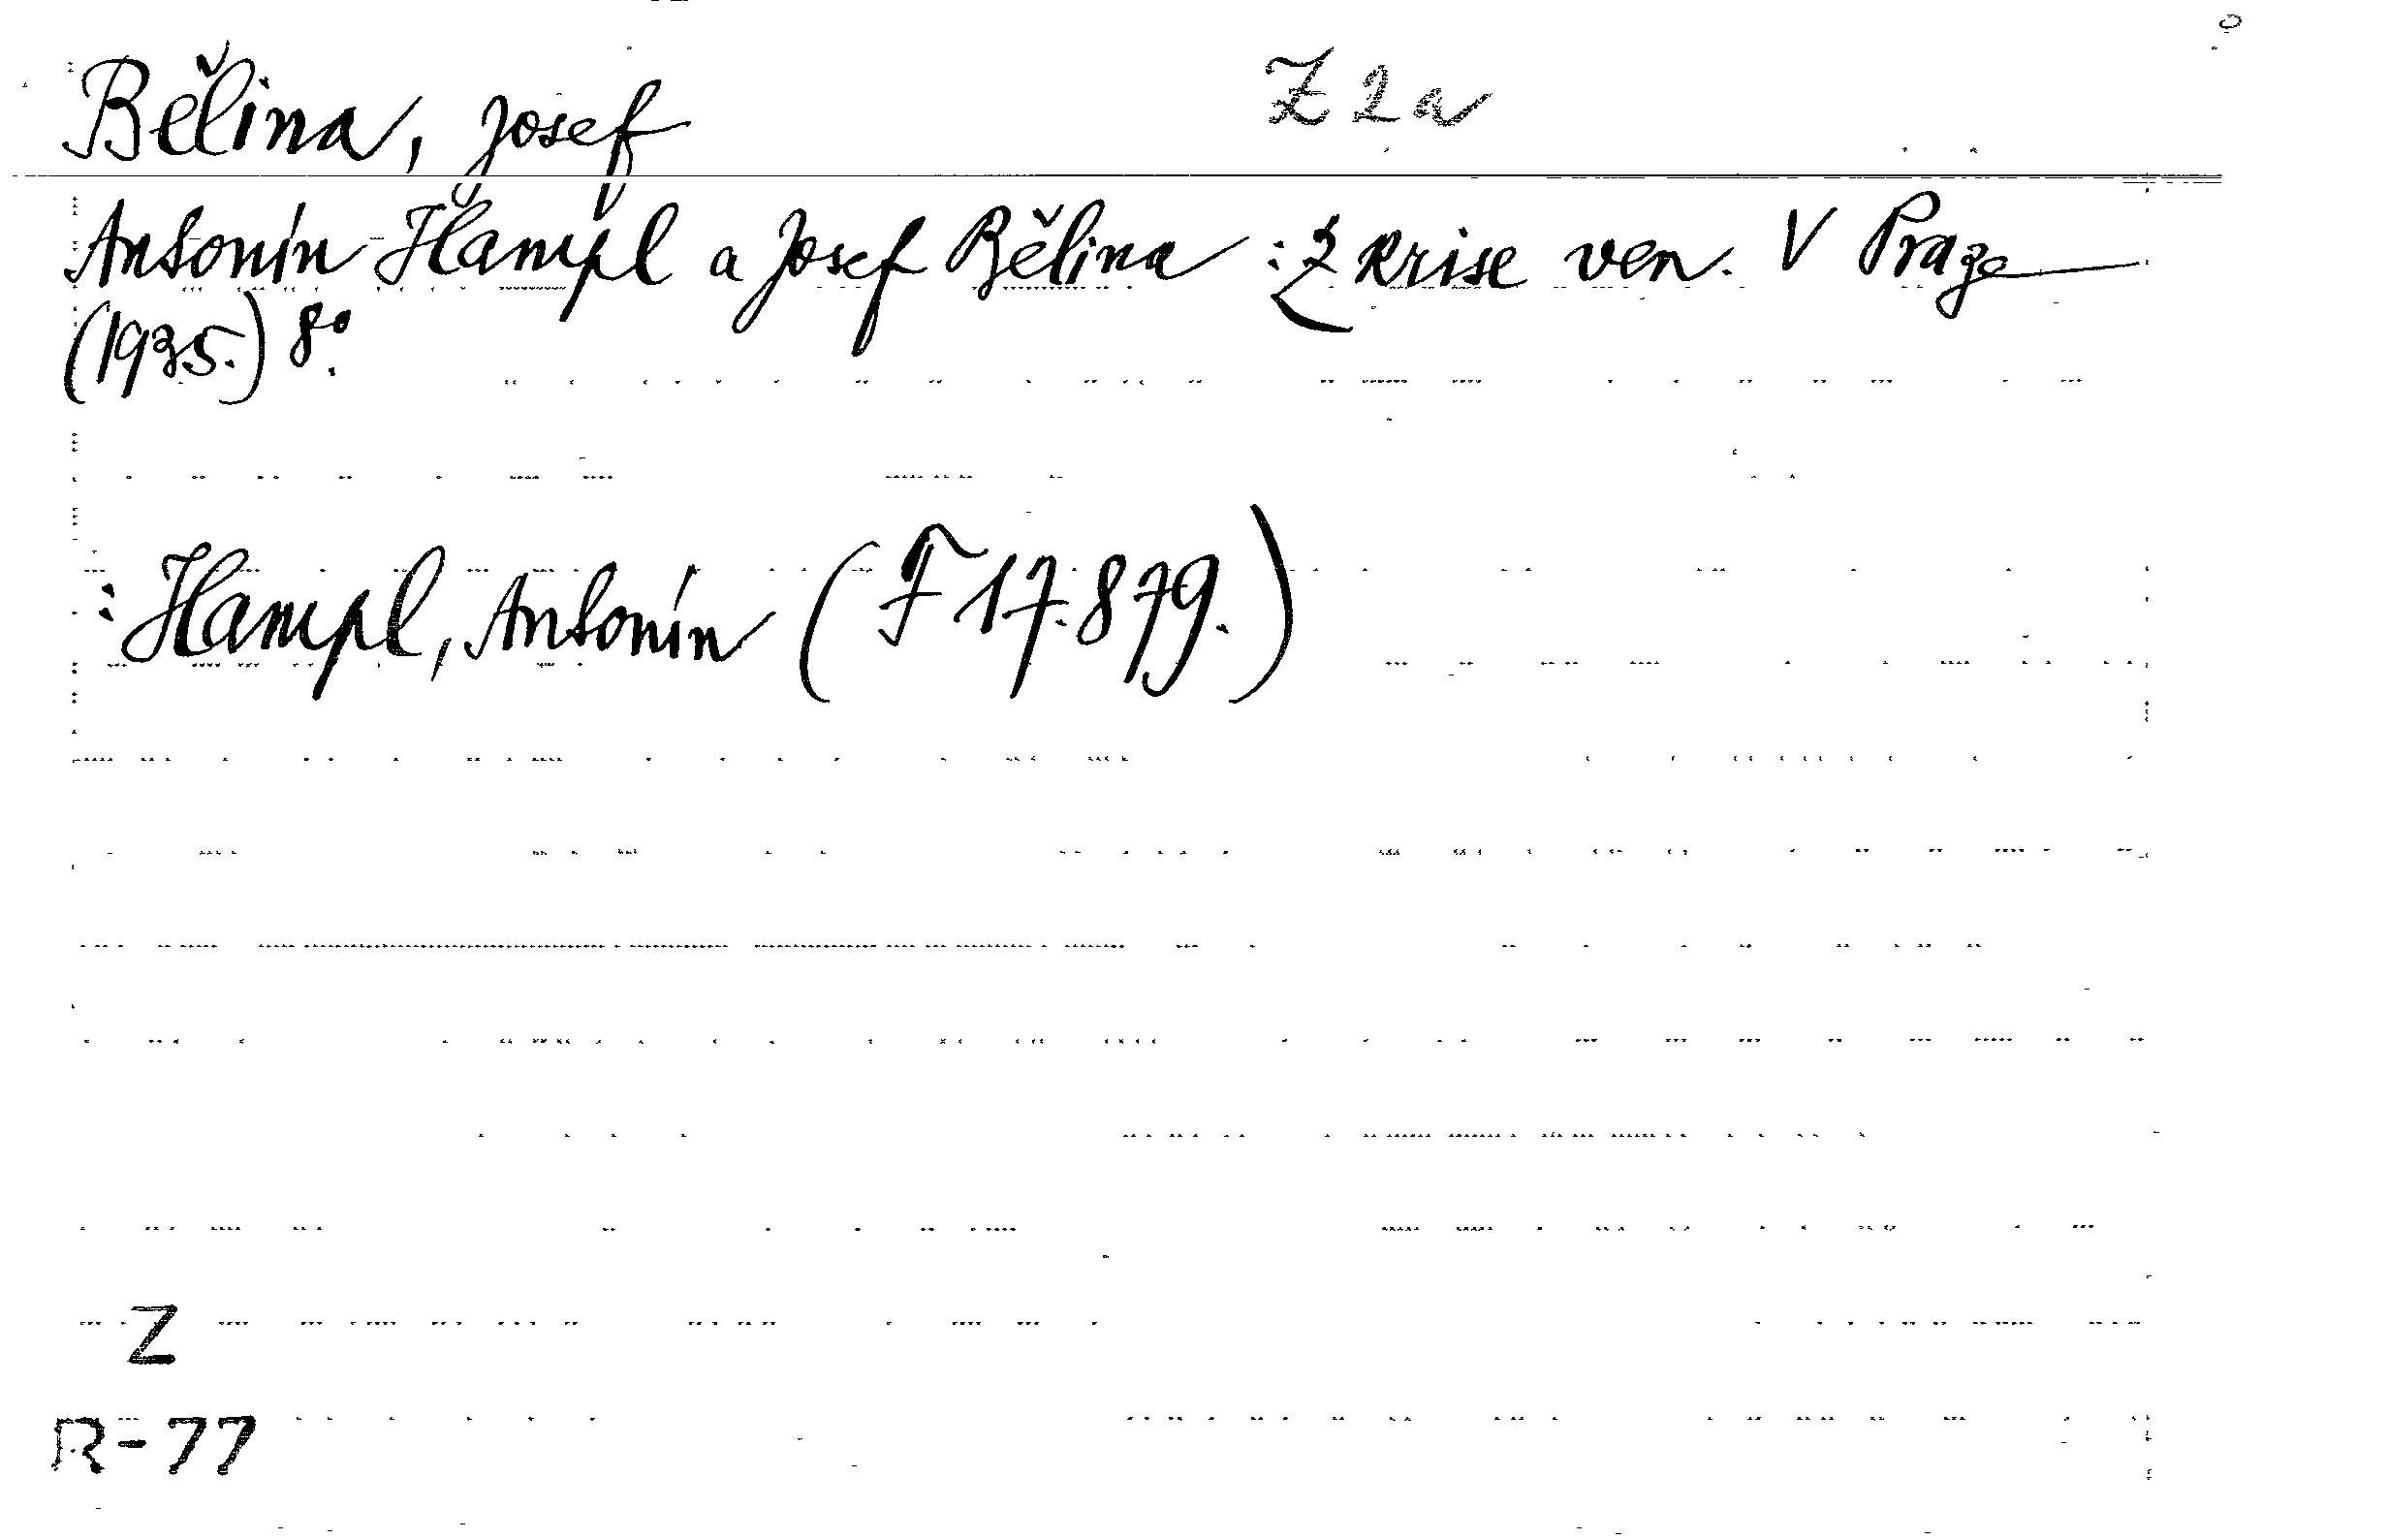 Bělina, Josef Z 2 a
Antonín Hampl a Josef Bělina : Z krise ven. V Praze
(1935.) 8°.
: Hampl, Antonín (F 17.879.)
Z
R-77